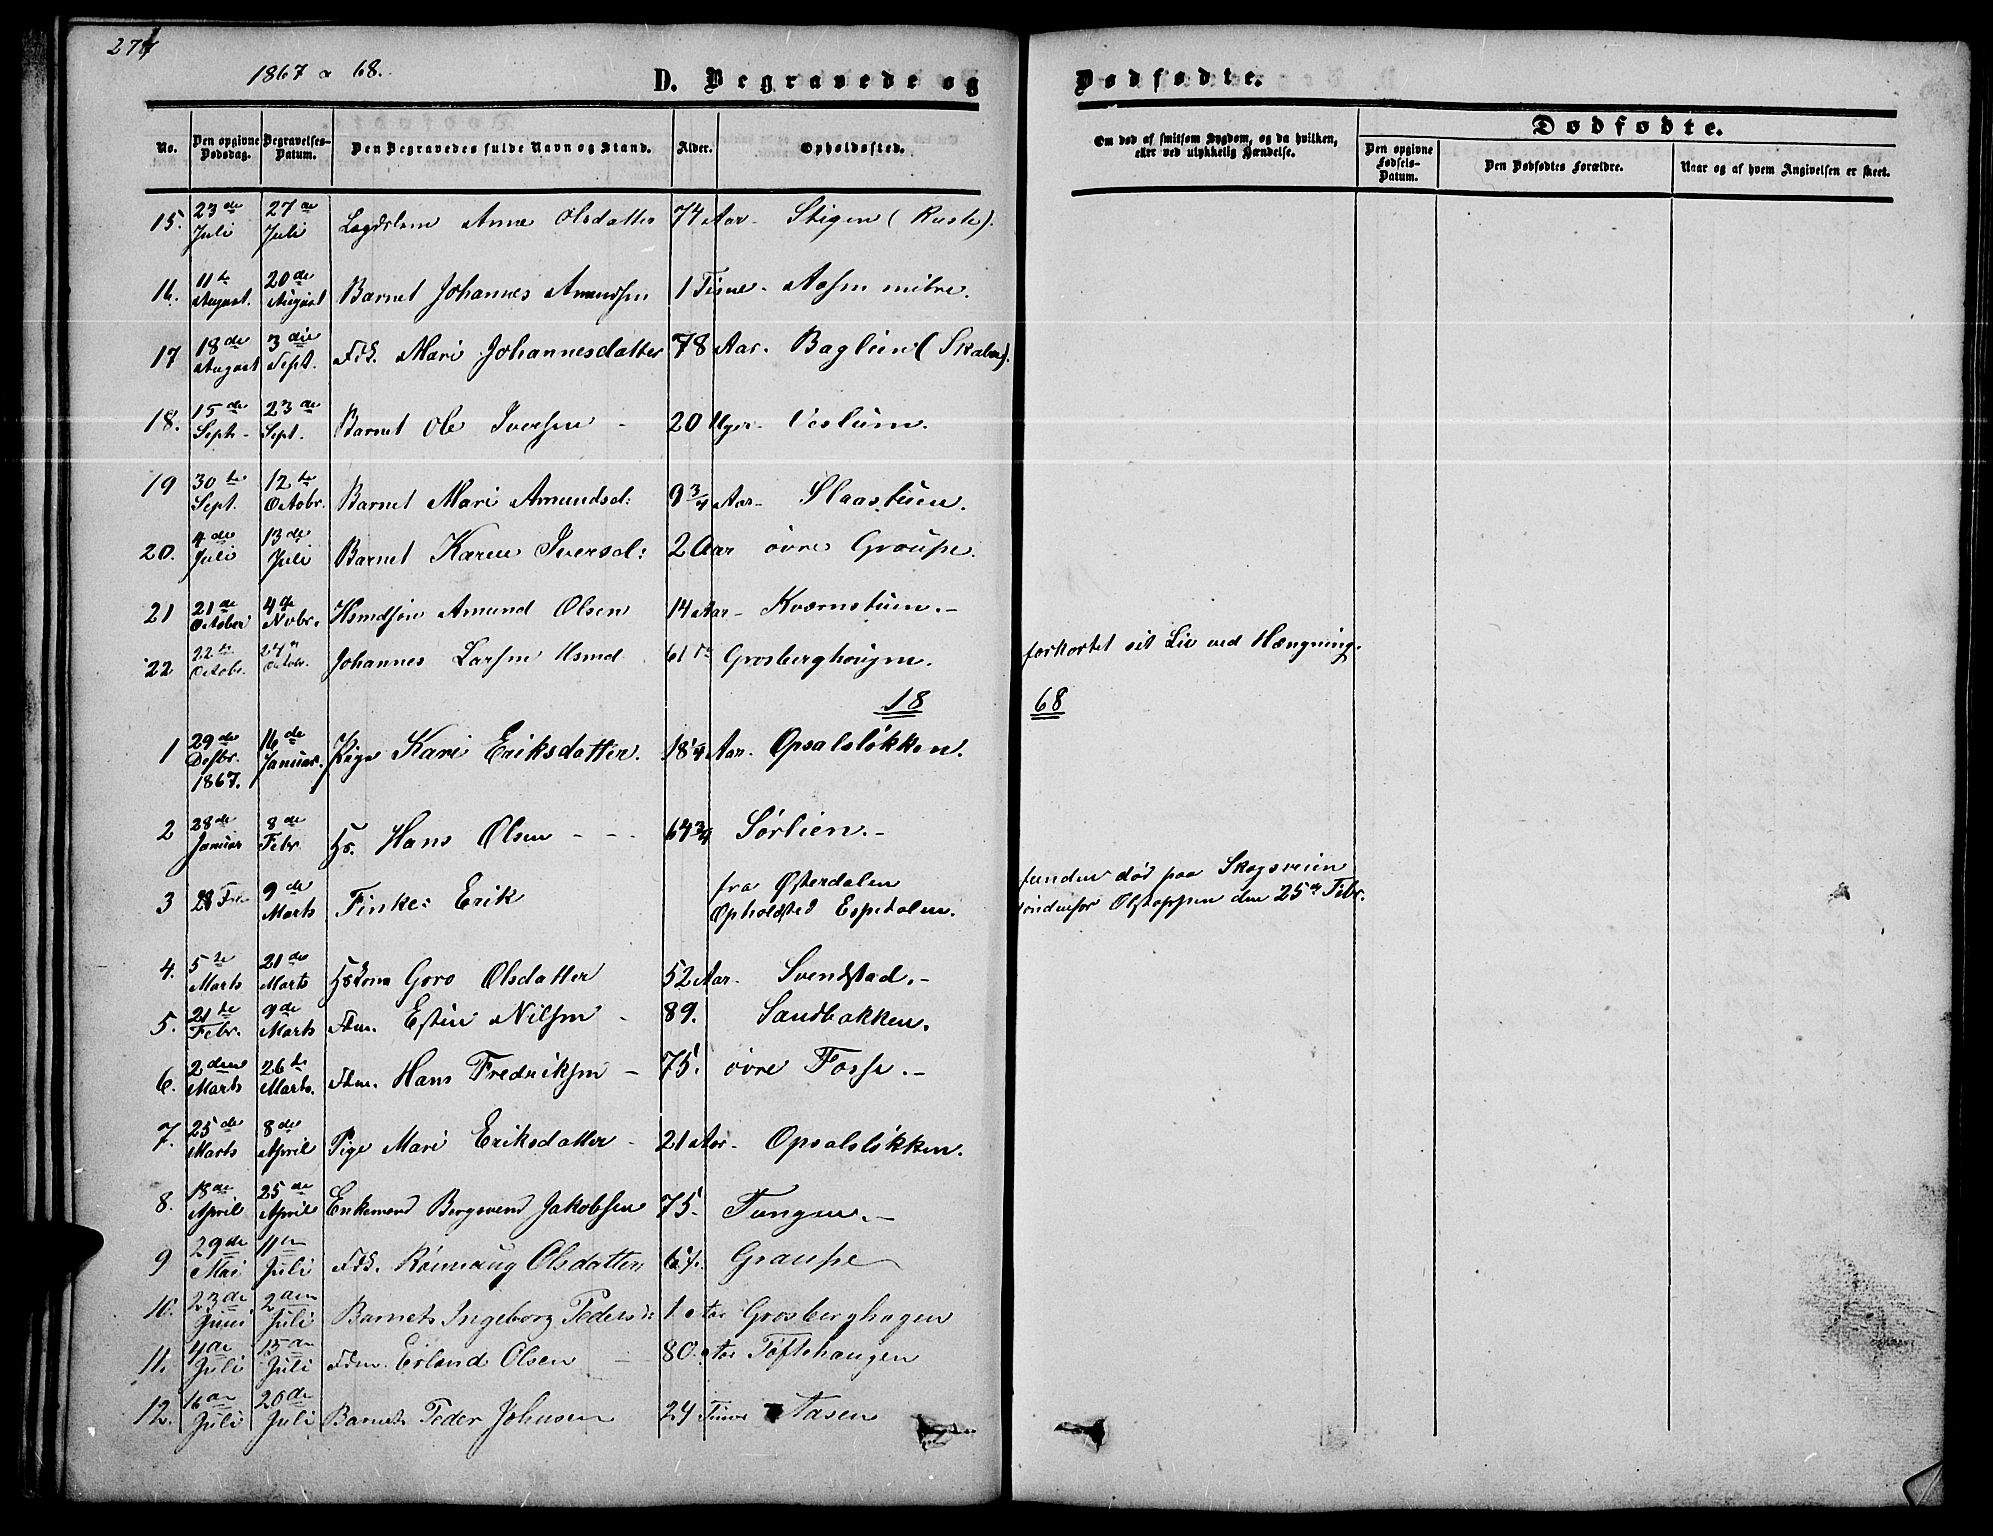 1867 & 68.
D. Begravede og Dødfødte.
No. Den opgivne Dødsdag. Begravelses-Datum. Den Begravedes fulde Navn og Stand. Alder. Opholdssted. Om død af smitsom Sygdom, og da hvilken, eller ved ulykkelig Hændelse. Dødfødte.
Den opgivne Fødsels-Datum. Den Dødfødtes Forældre. Naar og af hvem Angivelsen er skeet.
15. 23de Juli 27de Juli Lægdslem Anne Olsdatter 74 Aar - Stigen (Ruste).
16. 11te August. 20de August Barnet Johannes Amundsen 1 Time - Aasen
17 18de August 3die Sept. Fdk. Mari Johannesdatter 78 Aar. Baglien
18. 15de Sept. 23de Sept. Barnet Ole Iversen - 20 Uger - Veslum.
19 30te Sept. 12te Octobr. Barnet Mari Amundsd: 9 3/4 Aar - Slaastuen.
20. 4de Juli 13de Juli Barnet Karen Iversd: 2 Aar øvre Graupe.
21 21de October 4de Nvbr. Hsmdsøn Amund Olsen 14 Aar - Kværnstuen. -
22 22de Octobr. 24de Octobr. Johannes Larsen Hsmd 61 Grosberghougen. forkortet sit Liv ved Hængning.
18 68
1 29de Desbr. 1867. 16de Januar. Pige Kari Eriksdatter. 18 1/4 Aar. Opsalsløkken.
2 28de Januar 8de Febr. Hans Olsen - - - 64 3/4 Sørlien. -
3 9de Marts Finke: Erik fra Østerdalen funden død paa Skogsveien
Opholdsted Espetalen. søndenfor Olstappen den 25de Febr.
4. 5te Marts 21de Marts Goro Olsdatter 52 Aar - Svendstad. -
5. 21te Febr. 9de Marts Fdm. Estin Nilsen - 89. Sandbakken.
6. 2den Marts 26te Marts. Fdm. Hans Fredriksen - 75. øvre Fosse. -
7. 25de Marts 8de April Pige Mari Eriksdatter - 21 Aar - Opsalsløkken.
8. 18de April 25de April Enkemand Bergsvend Jakobsen 75. Tungen. -
9 29de Mai 11te Juli Fdk. Rønnaug Olsdatter Graupe
10. 23de Juni 2den Juli Barnet Ingeborg Pedersd: 1. Aar Grosberghagen
11. 4de Juli 15de Juli Fdm. Erland Olsen - 80. Aar Toftehaugen
12. 16de Juli 20de Juli Barnet Peder Johnsen 24 Timer Aasen